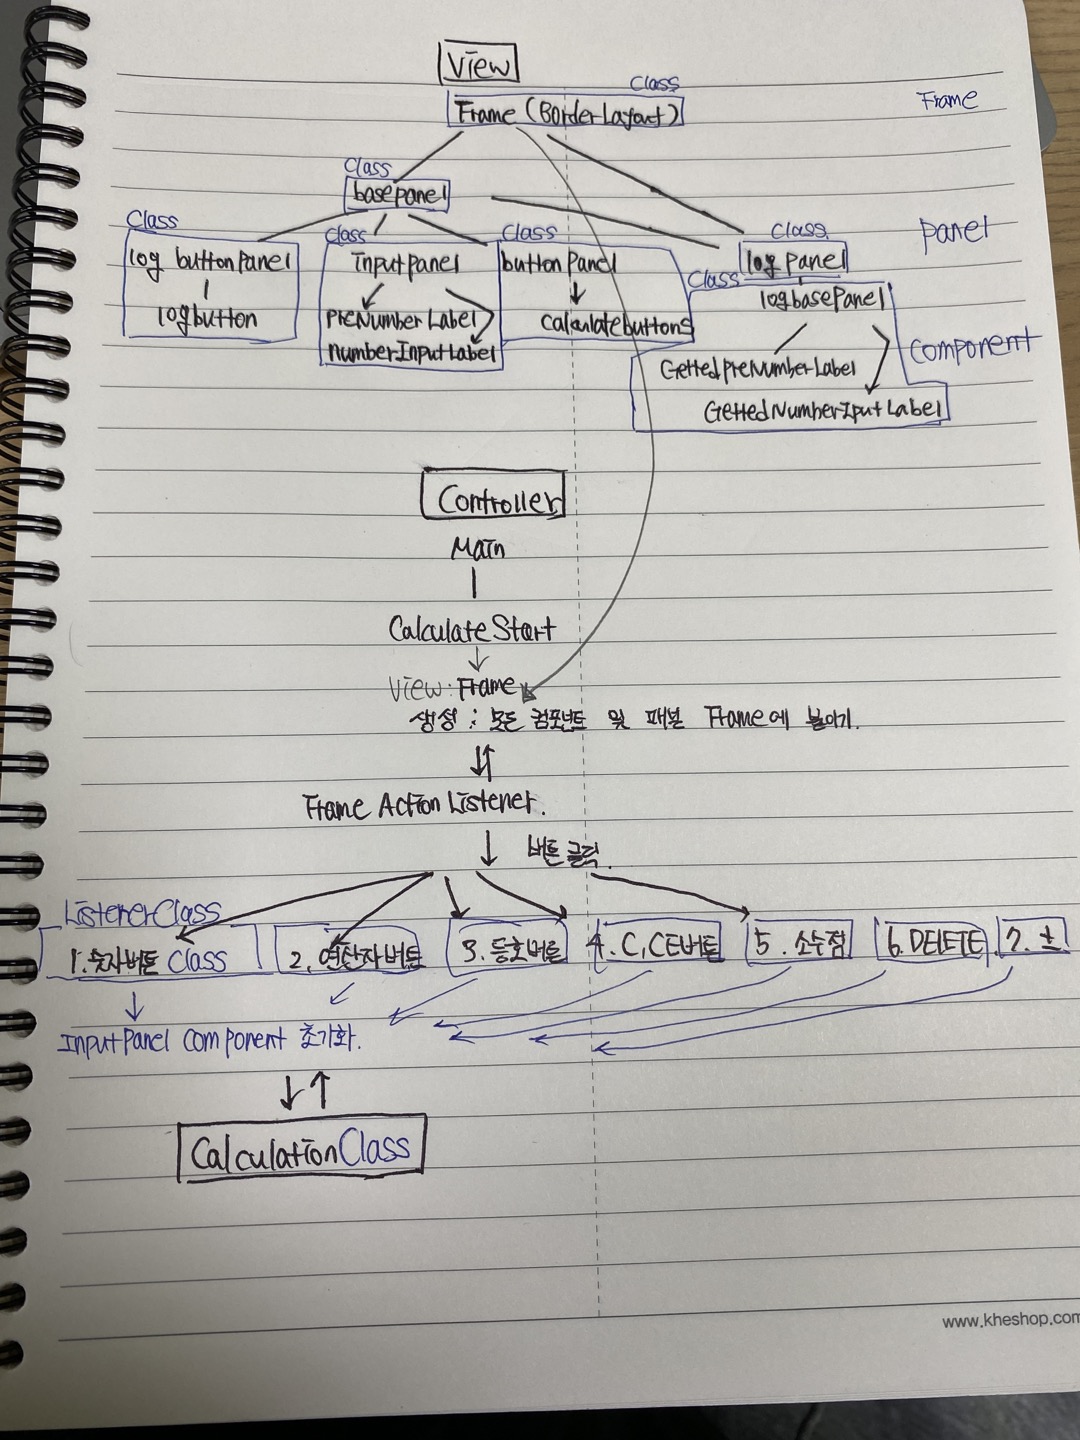 View
Class
Frame (BorderLayout)
Frame
Class
basepanel
Class
log buttonPanel
logbutton
Class
InputPanel
PreNumberLabel
NumberInputLabel
Class
buttonPanel
Calculatebuttons
Class
log panel
Panel
Class
logbasePanel
GettedPreNumberLabel
GettedNumberIputLabel
Component
Controller
Main
CalculateStart
View: Frame
생성 : 모든 컴포넌트 및 패널 Frame에 붙이기.
Frame Action Listener.
버튼 클릭.
ListenerClass
1. 숫자버튼 Class
2. 연산자버튼
3. 등호버튼
4. C, CE버튼
5. 소수점
6. DELETE
7. ±
InputPanel Component 초기화.
CalculationClass
www.kheshop.com